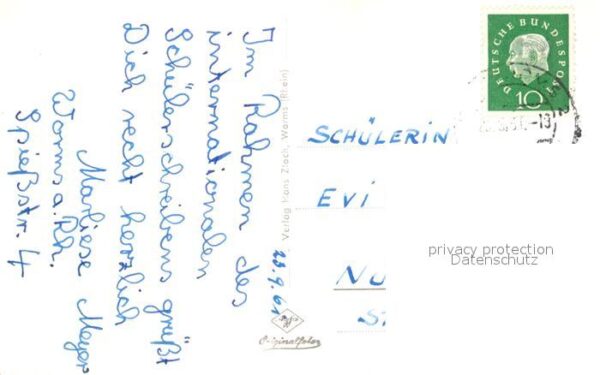 Im Rahmen des
internationalen
Schülerschreibens grüßt
Dich recht herzlich
Marliese Meyer
Worms a. Rh.
Spießstr. 4
23.9.61
Verlag Hans Ztach, Worms (Rhein)
Originalfoto
SCHÜLERIN
EVI
NU
ST
DEUTSCHE BUNDESPOST
10
-13
privacy protection
Datenschutz